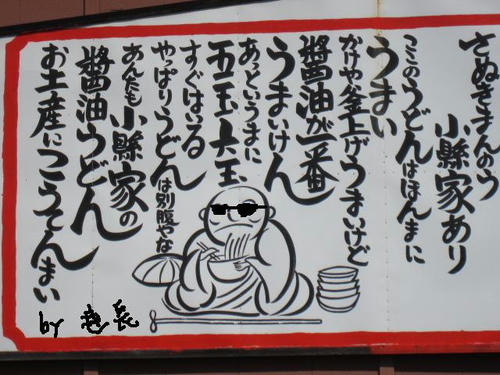 さぬきまんのう
小縣家あり
ここのうどんはほんまに
うまい
かけや釜上げうまいけど
醬油が一番
うまいけん
あっというまに
五玉大玉
すぐはいる
やっぱりうどんは別腹やな
あんたも小縣家の
醬油うどん
お土産にこうてんまい
by